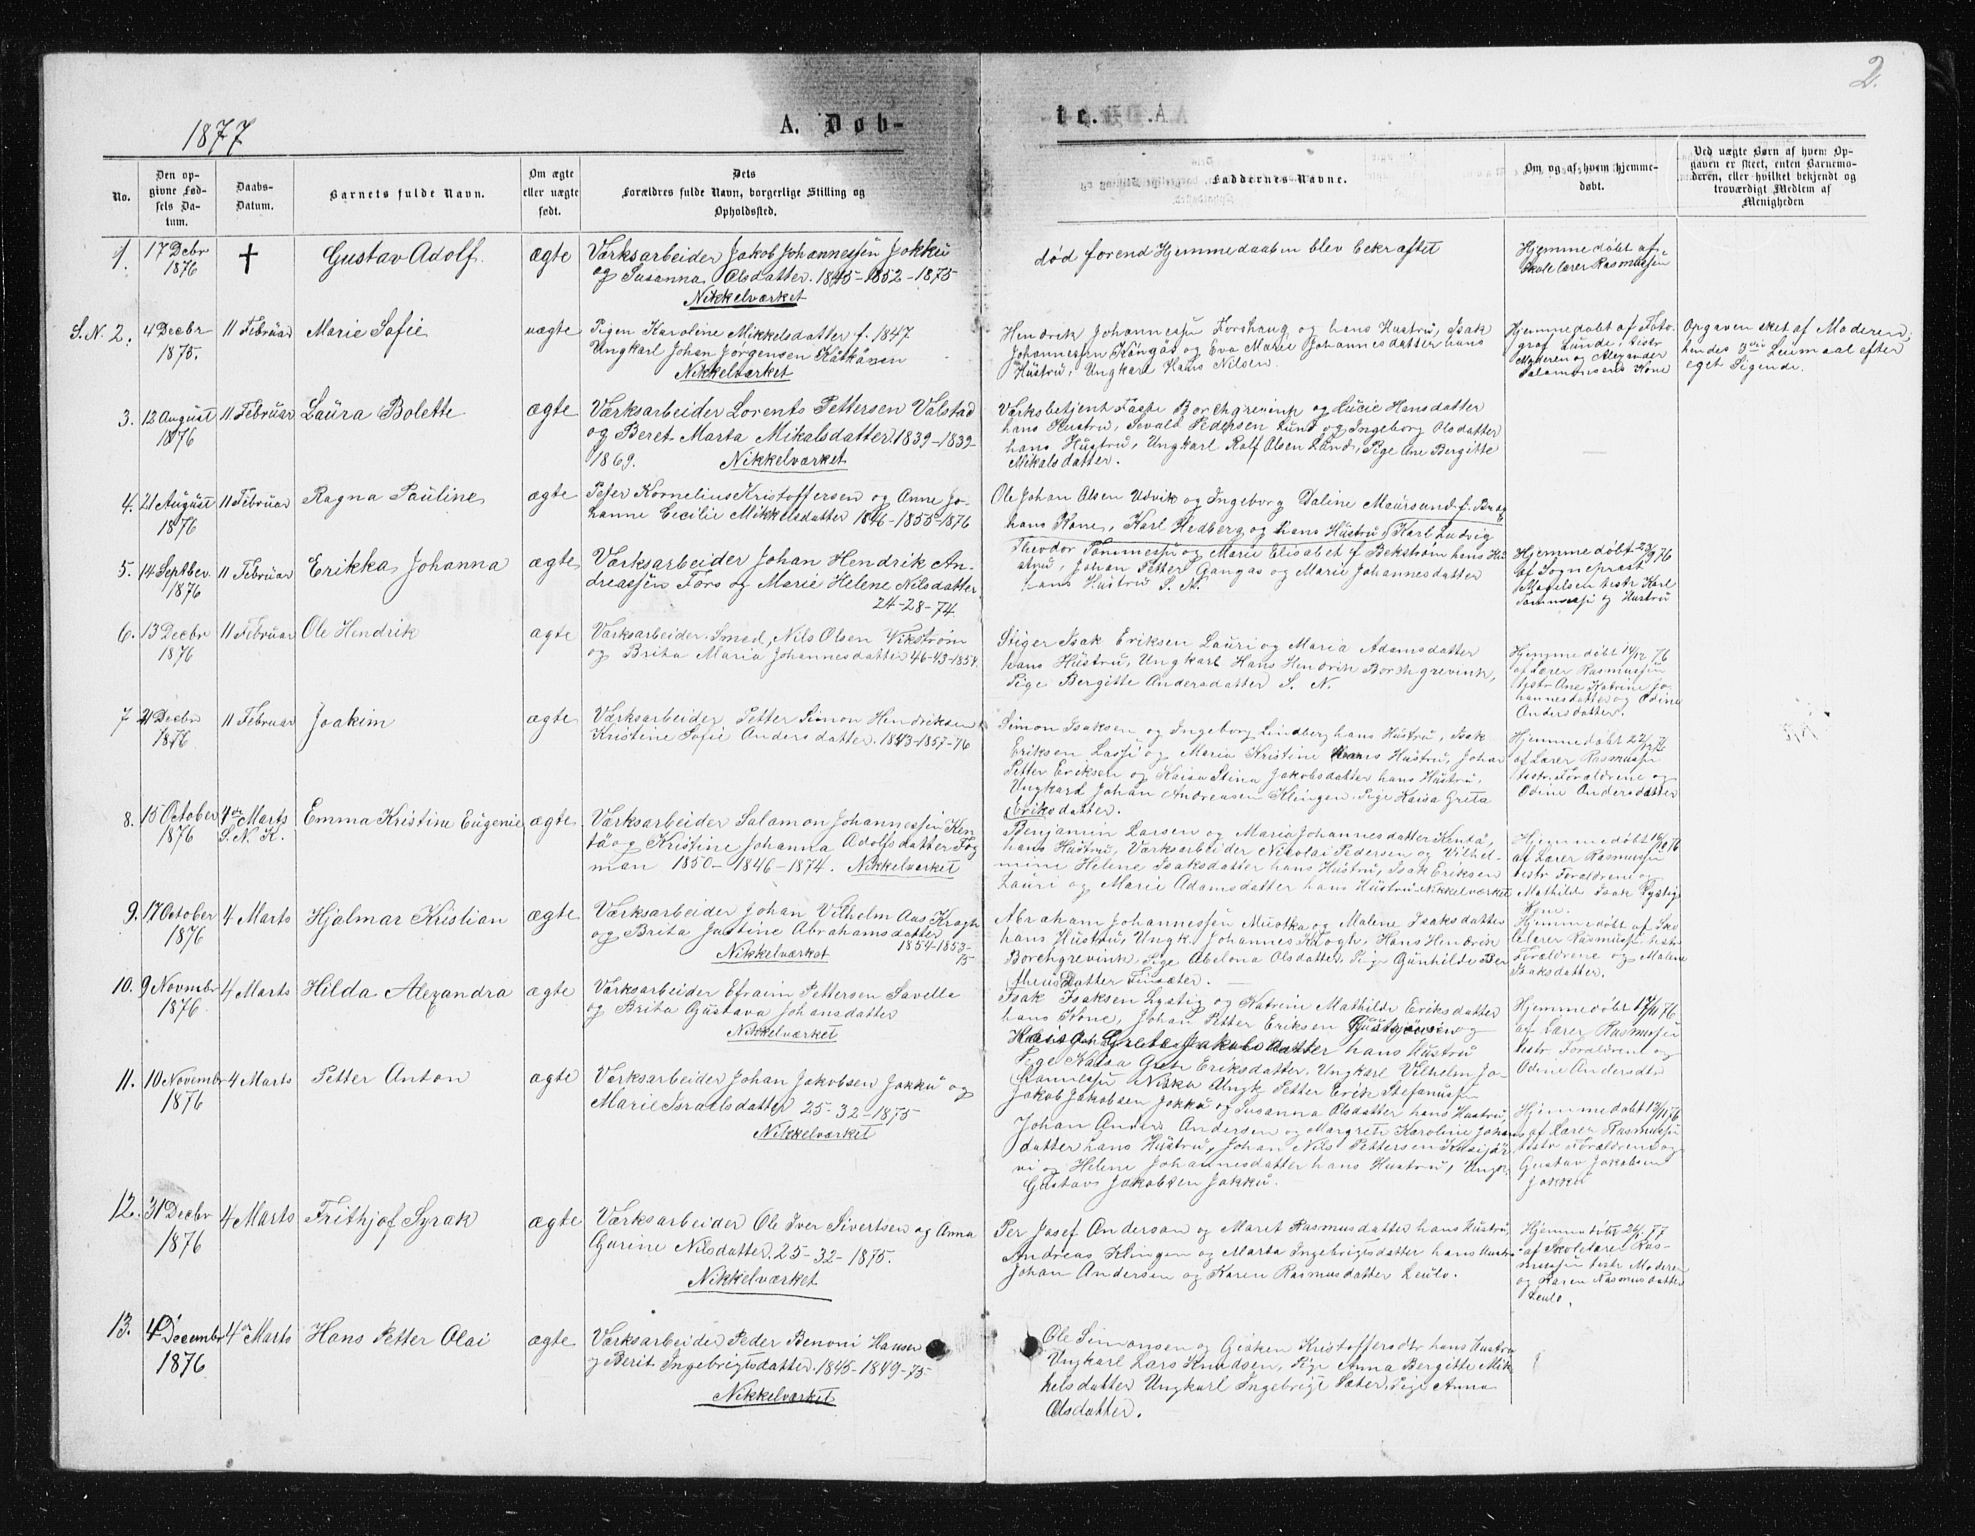 2.
1877
A. Døb-
te.
No.
Den op-
givne Fød-
sels Da-
tum.
Daabs-
Datum.
Barnets fulde Navn.
Om ægte
eller uægte
født.
Dets
Forældres fulde Navn, borgerlige Stilling og
Opholdssted.
Faddernes Navne.
Om og af hvem hjemme-
døbt.
Ved uægte Børn af hvem Op-
gaven er skeet, enten Barnemo-
deren, eller hvilket bekjendt og
troværdigt Medlem af
Menigheden
1.
17 Decbr
1876
✝
Gustav Adolf.
ægte
Værksarbeider Jakob Johannessen Jokku
og Susanna Olsdatter. 1845-1852-1875
Nikkelværket
død forend Hjemmedaaben blev bekræftet
Hjemmedøbt af
Skolelærer Rasmussen
S. N. 2.
4 Decbr
1875.
11 Februar
Marie Sofie
uægte
Pigen Karoline Mikkelsdatter f. 1847
Ungkarl Johan Jørgensen
Nikkelværket
Hendrik Johannessen Forshaug og hans Hustru, Isak
Johannessen Kangas og Eva Marie Johannesdatter hans
Hustru, Ungkarl Hans Nilsen.
Hjemmedøbt af Foto-
graf Lunde, testr
Moderen og Alexander
Salamonsens Kone
Opgaven sket af Moderen,
hendes 3die Leiermaal efter
eget Sigende.
3.
12 August
1876
11 Februar
Laura Bolette
ægte
Værksarbeider Lorents Pettersen Valstad
og Beret Marta Mikalsdatter 1839-1839-
1869. Nikkelværket
Værksbetjent Borchgrevink og Lucie Hansdatter
hans Hustru, Sevald Pedersen Lund og Ingeborg Olsdatter
hans Hustru, Ungkarl Rolf Olsen Lund, Pige Ane Bergitte
Mikalsdatter.
4.
21 August
1876
11 Februar
Ragna Pauline
ægte
Peter Kornelius Kristoffersen og Anne Jo-
hanne Cecilie Mikkelsdatter 1846-1855-1876
Ole Johan Olsen Udvik og Ingeborg Paline Maursund f.
hans Kone, Karl Hedberg og hans Hustru, Karl Ludvig
5.
14 Septber
1876
11 Februar
Erikka Johanna
ægte
Værksarbeider Johan Hendrik An-
dreassen Fors og Marie Helene Nilsdatter
24-28-74.
Theodor Tommessen og Marie Elisabet f. Bekstrøm hans Hu
stru, Johan Petter Gangas og Marie Johannesdatter
hans Hustru S. N.
Hjemmedøbt 23/9 76
af Sogneprest
testr Karl
Tommessen og Hustru
6.
13 Decbr
1876
11 Februar
Ole Hendrik
ægte
Værksarbeider, Smed, Nils Olsen Vikstrøm
og Brita Maria Johannesdatter 46-43-1854.
Stiger Isak Eriksen Lauri og Maria Adamsdatter
hans Hustru, Ungkarl Hans Hendrik Borchgrevink,
Pige Bergitte Andersdatter S. N.
Hjemmedøbt 14/12 76
af Lærer Rasmussen
testr Ane Katrine Jo-
hannesdatter og Odine
Andersdatter.
7
21 Decbr
1876
11 Februar
Joakim
ægte
Værksarbeider Petter Simon Hendriksen
Kristine Sofie Andersdatter. 1843-1857-76
Simon Isaksen og Ingeborg Lindberg hans Hustru, Isak
Eriksen Lassi og Maria Kristine hans Hustru, Johan
Petter Eriksen og Kaisa Stina Jakobsdatter hans Hustru,
Ungkarl Johan Andreasen Klingen, Pige Kaisa Greta
Eriksdatter.
Hjemmedøbt 22/12 76
af Lærer Rasmussen
testr. Forældrene og
Odine Andersdatter
8.
15 October
1876
4de Marts
S. N. K.
Emma Kristine Eugenie
ægte
Værksarbeider Salamon Johannessen Ken-
tä og Kristine Johanna Adolfsdatter Fog
man 1850-1846-1874. Nikkelværket
Benjamin Larsen og Maria Johannesdatter Kentä,
hans Hustru, Værksarbeider Nicolai Pedersen og Vilhel-
mine Helene Isaksdatter hans Hustru, Isak Eriksen
Lauri og Marie Adamsdatter hans Hustru Nikkelværket
Hjemmedøbt 16/10 76
af Lærer Rasmussen
testr Forældrene og
Mathilde Isak Lystigs
Kone.
9.
17 October
1876
4 Marts
Hjalmar Kristian
ægte
Værksarbeider Johan Vilhelm Aas Kragh
og Brita Justine Abrahamsdatter
1854-1853-
75
Nikkelværket
Abraham Johannessen Muotka og Malene Isaksdatter
hans Hustru, Ungk. Johannes Krogh, Hans Hendrik
Borchgrevink, Pige Abelona Olsdatter, Pige Gunhilde Ber
theusdatter Finsæter.
Hjemmedøbt af Sko
lelærer Rasmussen testr
Forældrene og Malene
Isaksdatter.
10.
9 Novmbr
1876
4 Marts
Hilda Alexandra
ægte
Værksarbeider Efraim Pettersen Savella
og Brita Gustava Johansdatter
Nikkelværket
Isak Isaksen Lystig og Katrine Mathilde Eriksdatter
hans Kone, Johan Petter Eriksen og
Greta Jakobsdatter hans Hustru
Pige Kaisa Greta Eriksdatter, Ungkarl Vilhelm Jo-
hannessen Niska Ungk Petter Erik Stefanussen
Hjemmedøbt 17/11 76
af Lærer Rasmussen
testr. Forældrene og
Odine Andersdtr
11.
10 Novembr
1876
4 Marts
Petter Anton
ægte
Værksarbeider Johan Jakobsen Jokku og
Marie Israelsdatter 25-32-1875
Nikkelværket
Jakob Jakobsen Jokku og Susanna Olsdatter hans Hustru,
Johan Anders Andersen og Margrete Karoline Johans
datter hans Hustru, Johan Nils Pettersen Kusijär
vi og Helene Johannesdatter hans Hustru, Ungk.
Gustavs Jakobsen Jokku.
Hjemmedøbt 13/11 76
af Lærer Rasmussen
testr Forældrene og
Gustav Jakobsen
Jokku
12.
31 Decbr
1876
4 Marts
Frithjof Syrak
ægte
Værksarbeider Ole Iver Sivertsen og Anna
Gurine Nilsdatter. 25-32-1875.
Nikkelværket
Per Josef Anderson og Maret Rasmusdatter hans Hustru,
Andreas Klingen og Marta Ingebrigtsdatter hans Hustru
Johan Andersen og Karen Rasmusdatter Leulo.
Hjemmedøbt 26/1 77
af Skolelærer Ras-
mussen testr Moderen
og Karen Rasmusdatter
Leulo.
13.
4 Decembr
1876
4de Marts
Hans Petter Olai
ægte
Værksarbeider Peder Benoni Hansen
og Berit Ingebrigtsdatter. 1845-1849-75
Nikkelværket
Ole Simonsen og Gjøken Kristoffersdtr hans Hustru
Ungkarl Lars Knudsen, Pige Anna Bergitte Mik
kelsdatter Ungkarl Ingebrigt Sæter, Pige Anna
Olsdatter.